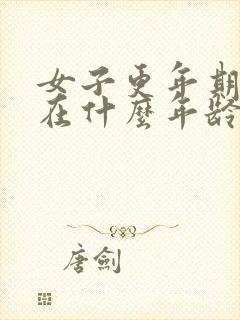 女子更年期
在什麼年齡
唐劍